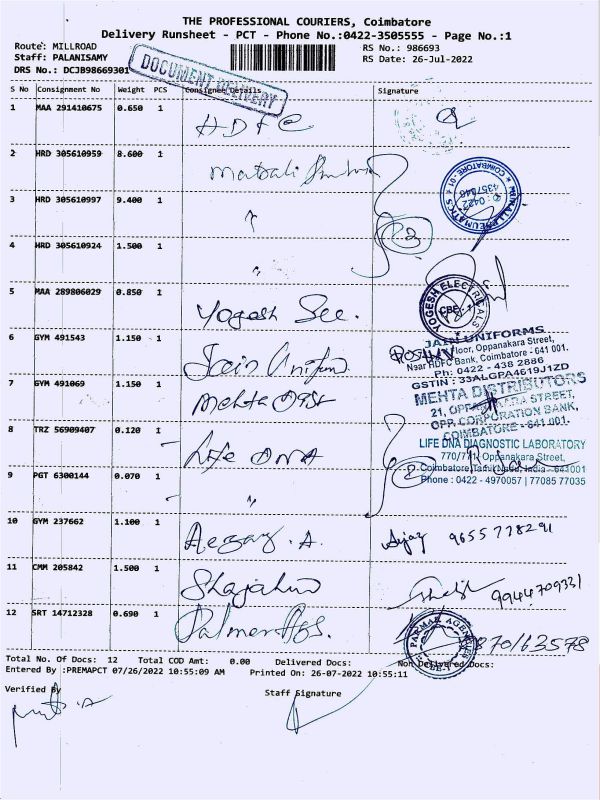 THE PROFESSIONAL COURIERS, Coimbatore
Delivery Runsheet - PCT - Phone No.:0422-3505555 - Page No.:1
Route: MILLROAD
RS No.: 986693
Staff: PALANISAMY
RS Date: 26-Jul-2022
DRS No.: DCJB98669301
DOCUMENT DELIVERY
S No Consignment No Weight PCS Consignee Details Signature
1 MAA 291410675 0.650 1
HDFC
2 HRD 305610959 8.600 1
3 HRD 305610997 9.400 1
"
COIMBATORE - 01
0422
4357046
4 HRD 305610924 1.500 1
"
5 MAA 289806029 0.850 1
Yogesh See.
YOGESH ELECTRICALS
CBE-1
6 GYM 491543 1.150 1
Jain Uniform
JAIN UNIFORMS
Floor, Oppanakara Street,
Near HDFC Bank, Coimbatore - 641 001.
Ph: 0422 - 438 2886
GSTIN : 33ALGPA4619J1ZD
7 GYM 491069 1.150 1
Mehta Dist
MEHTA DISTRIBUTORS
21, OPPANAKARA STREET,
OPP. CORPORATION BANK,
COIMBATORE - 641 001.
8 TRZ 56909407 0.120 1
Life DNA
LIFE DNA DIAGNOSTIC LABORATORY
770/771 Oppanakara Street,
Coimbatore, Tamil Nadu, India - 641001
Phone : 0422 - 4970057 | 77085 77035
9 PGT 6300144 0.070 1
"
10 GYM 237662 1.100 1
Ajay 9655778291
11 CMM 205842 1.500 1
Shajahan
9944709331
12 SRT 14712328 0.690 1
Palmer Ags.
PARMAR AGENCIES
CBE-1
870163578
Total No. Of Docs: 12 Total COD Amt: 0.00 Delivered Docs: Non Delivered Docs:
Entered By :PREMAPCT 07/26/2022 10:55:09 AM Printed On: 26-07-2022 10:55:11
Verified By
Staff Signature